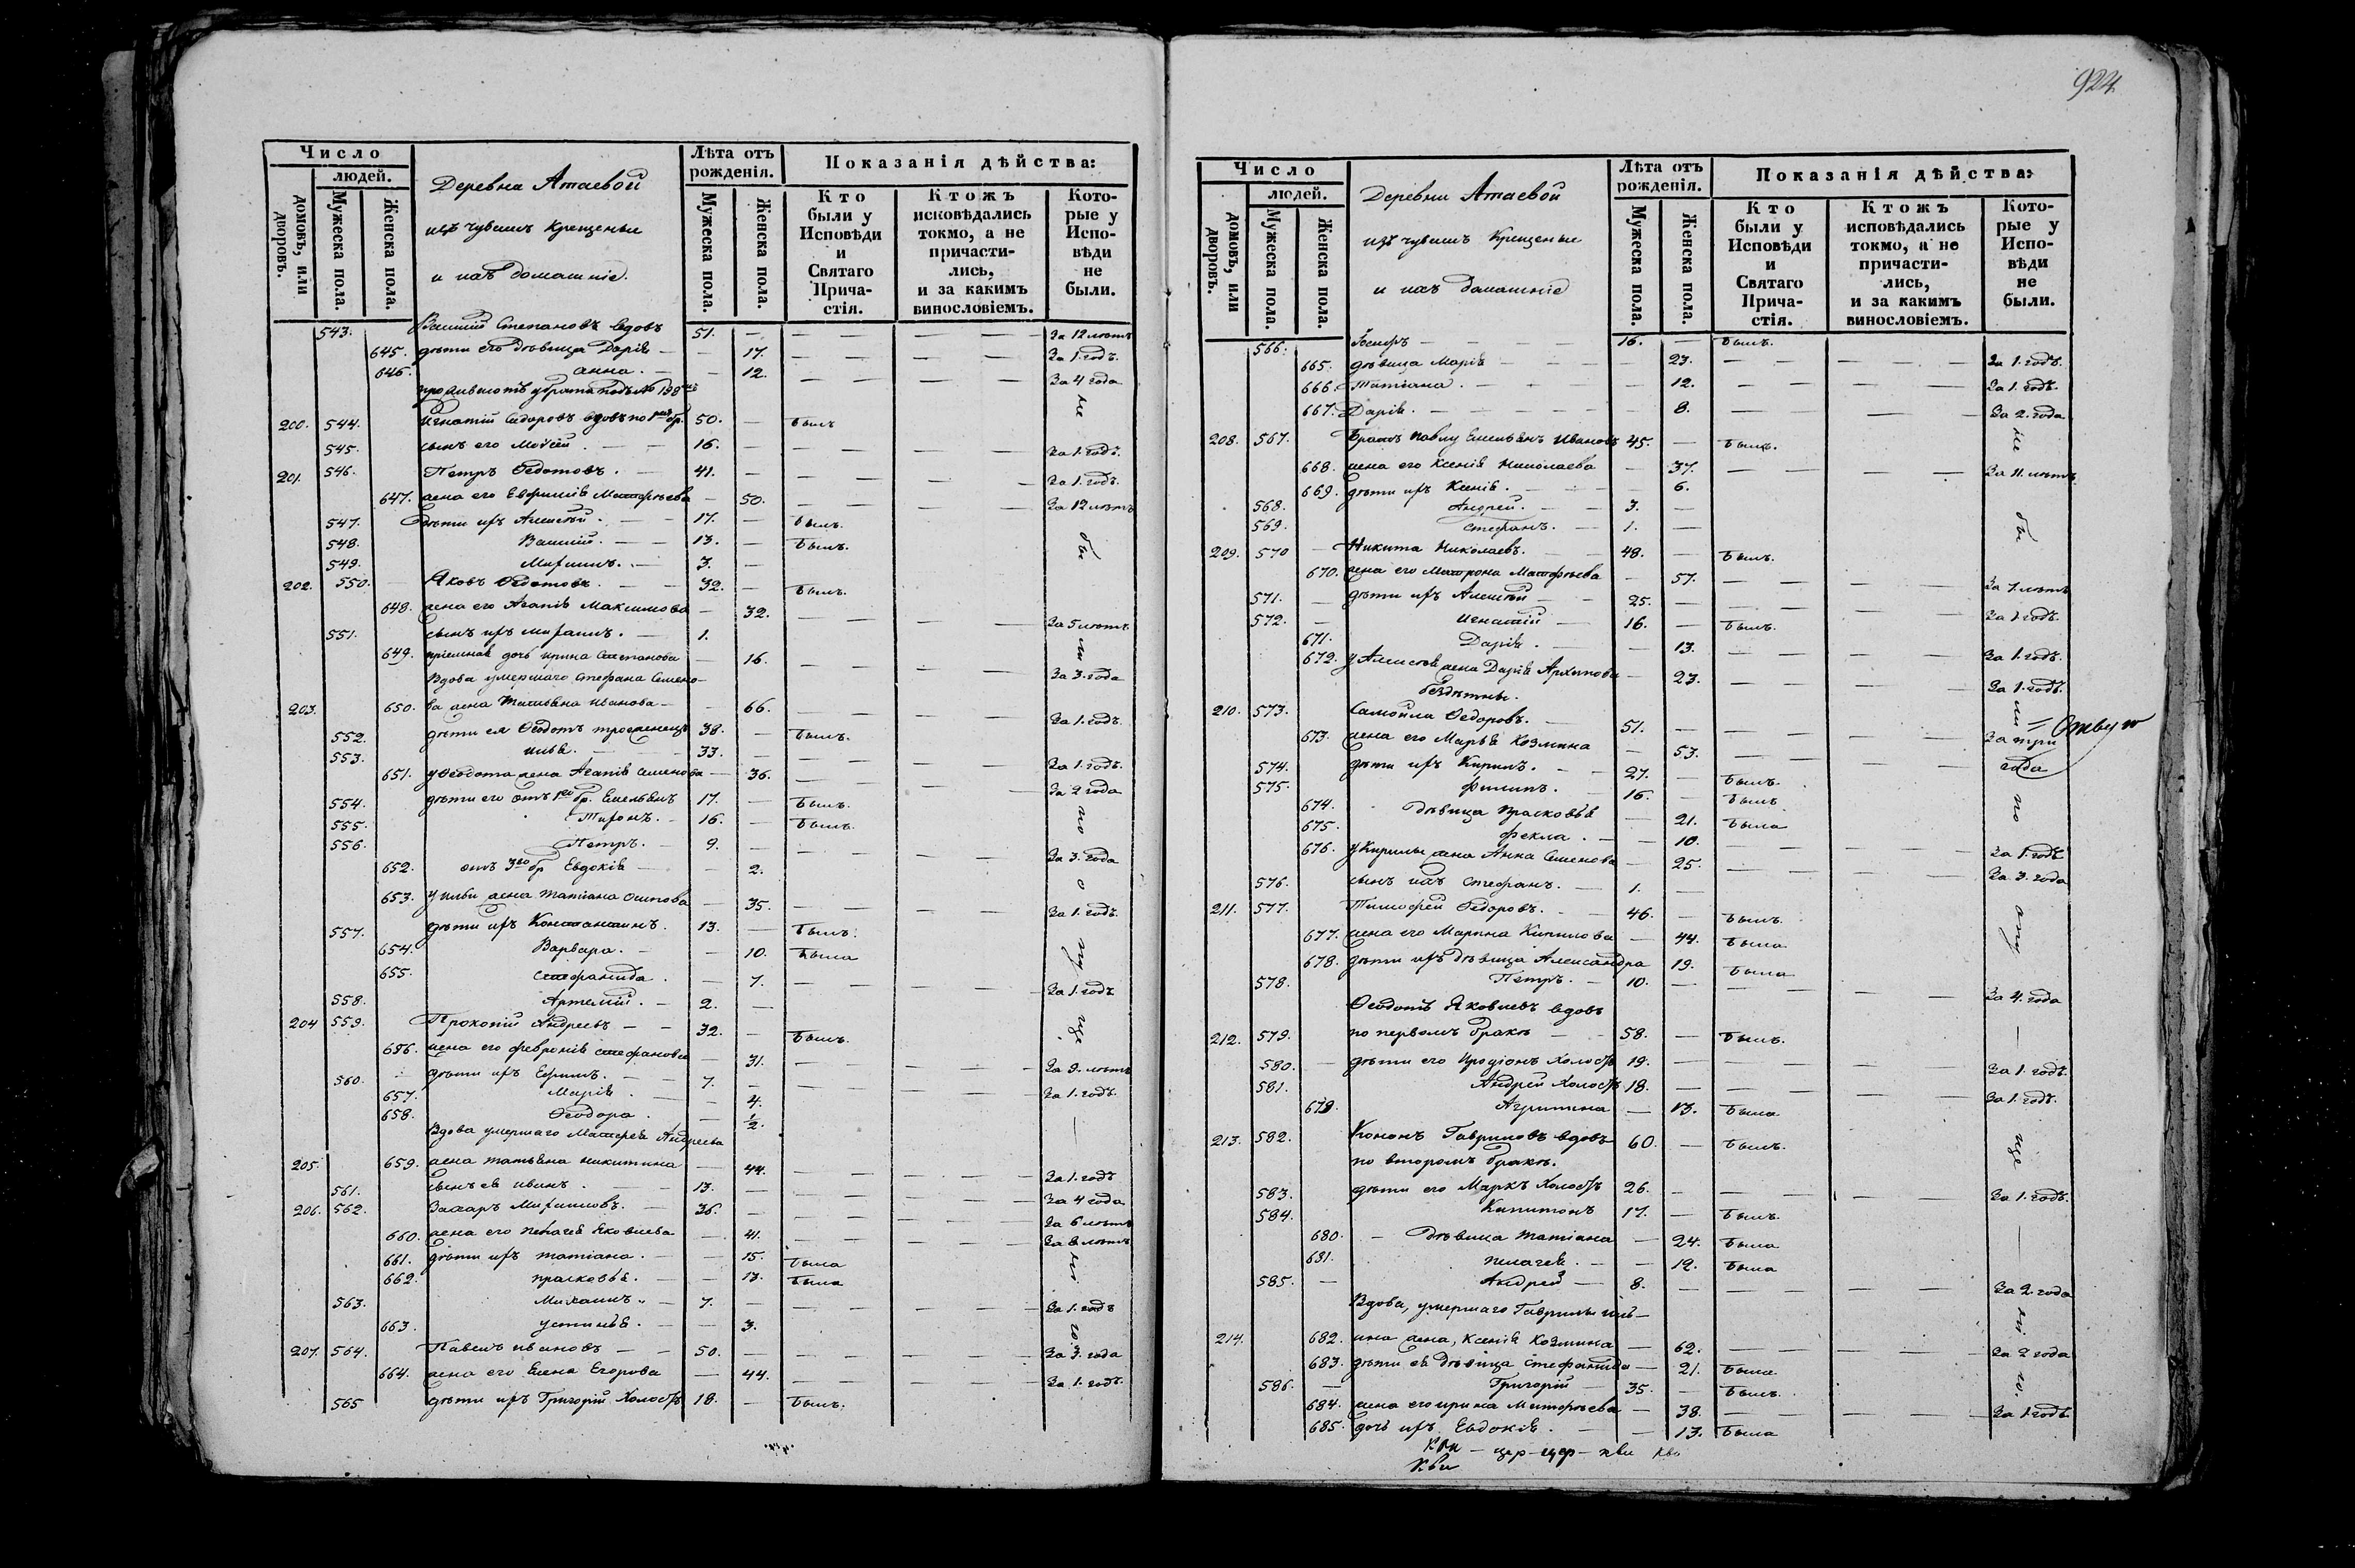 Число
людей.
домовъ, или дворовъ.
Мужеска пола.
Женска пола.
Деревни Атаевой
изъ чувашъ Крещеныи
и ихъ домашніе.
Лѣта отъ рожденія.
Мужеска пола.
Женска пола.
Показанія дѣйства:
Кто были у Исповѣди и Святаго Прича-стія.
Ктожъ исповѣдались токмо, а не причасти-лись, и за какимъ винословіемъ.
Кото-рые у Испо-вѣди не были.
543. Василій Степановъ вдовъ 51. — — — — — За 12 лѣтъ
645. дѣти его дѣвица Дарія — — 17. — — — — За 1. годъ.
646. анна. — — 12. — — — — За 4 года
проживаютъ у брата подъ № 198
200. 544. Игнатій Сидоровъ вдовъ по 1 бр. 50. — былъ
545. сынъ его Моисей — — 16. — — — — — За 1. годъ.
201. 546. Петръ Ѳедотовъ. — 41. — — — — — За 1. годъ.
647. жена его Евфимія Матфѣева — 50. — — — — За 12 лѣтъ
547. дѣти ихъ Алексѣй. — — 17. — былъ.
548. Василій. — — 13. — былъ.
549. Михаилъ. — 3. —
202. 550. — Яковъ Ѳедотовъ. — — 32. — былъ.
648. жена его Агапія Максимова — 32. — — — — За 5 лѣтъ
551. сынъ ихъ михаилъ. — 1.
649. пріемная дочь ирина Степанова — 16. — — — — За 3. года
Вдова умершаго Стефана Семено-
203. 650. ва жена Татьяна Иванова — — 66. — — — — За 1. годъ.
552. дѣти ея Ѳедотъ троеженецъ 38. — былъ.
553. илья. — — 33. — — — — — За 1. годъ.
651. у Ѳедота жена Агапія Семенова — 36. — — — — За 2 года
554. дѣти его отъ 1го бр. Емельянъ 17. — былъ.
555. Тихонъ. — 16. — былъ.
556. Петръ. — 9. — — — — — За 3. года
652. отъ 3го бр Евдокія — — 2.
653. у ильи жена татіана Осипова — 35. — — — — За 1. годъ.
557. дѣти ихъ Константинъ. 13. — былъ.
654. Варвара. — — 10. была
655. Стефанида. — 7. — — — — За 1. годъ
558. Артемій. — 2. —
204 559. Прокопій Андреевъ — — 32. — былъ.
656. жена его февронія Стефанова — 31. — — — — За 9. лѣтъ
560. дѣти ихъ Ефимъ. — — 7. — — — — — За 1. годъ.
657. Марія. — — 4.
658. Ѳеодора. — 1/2.
Вдова умершаго Матфея Андреева
205. 659. жена татьяна никитина — 44. — — — — За 1. годъ
561. сынъ ея иванъ. — 13. — — — — — За 4 года
206. 562. Захаръ Михайловъ. — 36. — — — — — За 6 лѣтъ
660. жена его Пелагея Яковлева — 41. — — — — За 8 лѣтъ
661. дѣти ихъ татіана. — — 15. была
662. прасковья. — — 13. была
563. Михаилъ. — 7. — — — — — За 1. годъ
663. устинья. — — 3.
207. 564. Павелъ ивановъ — — 50. — — — — — За 3. года
664. жена его Елена Егорова — 44. — — — — За 1. годъ.
565 дѣти ихъ Григорій Холостъ 18. — былъ.
не
бы
ли
по
о
му
же
924.
Число
людей.
домовъ, или дворовъ.
Мужеска пола.
Женска пола.
Деревни Атаевой
изъ чувашъ Крещеные
и ихъ домашніе
Лѣта отъ рожденія.
Мужеска пола.
Женска пола.
Показанія дѣйства:
Кто были у Исповѣди и Святаго Прича-стія.
Ктожъ исповѣдались токмо, а не причасти-лись, и за какимъ винословіемъ.
Кото-рые у Испо-вѣди не были.
566. Іосифъ — — — — 16. — былъ.
665. дѣвица Марія — — — 23. — — — — За 1. годъ.
666. татіана. — — — 12. — — — — За 1. годъ.
667. Дарія. — — — 8. — — — За 2. года
208. 567. братъ павлу Емельянъ Ивановъ 45. — былъ.
668. жена его Ксенія Николаева — 37. — — — — За 11. лѣтъ
669. дѣти ихъ Ксенія. — — — 6.
568. Андрей. — — 3. —
569. стефанъ. — 1. —
209. 570 — Никита Николаевъ. — — 48. — былъ.
670. жена его Матрона Матфѣева — 57. — — — — За 7. лѣтъ
571. — дѣти ихъ Алексѣй — — 25. — — — — — За 1. годъ.
572. — игнатій — 16. — былъ.
671. Дарія. — — 13. — — — — За 1. годъ.
672. у Алексѣя жена Дарія Архипова — 23. — — — — За 1. годъ.
бездѣтны.
210. 573. Самойла Ѳедоровъ. — 51. — — — — — За три года
673. жена его Марья Козмина — 53. — — — —
574. дѣти ихъ Кирилъ. — — 27. — былъ.
575. филипъ. — 16. — былъ
674. дѣвица Прасковья — 21. была
675. фекла. — — 10. — — — — За 1. годъ
676. у Кирилы жена Анна Семенова — 25. — — — — За 3. года
576. сынъ ихъ Стефанъ. — 1. —
211. 577. Тимофей Ѳедоровъ. — — 46. — былъ.
677. жена его Марина Кирилова — 44. была
678. дѣти ихъ дѣвица Александра 19. была
578. Петръ. — 10. — — — — — За 4. года
Ѳеодотъ Яковлевъ вдовъ
212. 579. по первомъ бракѣ — — 58. — былъ.
580. — дѣти его Иродіонъ Холостъ 19. — — — — — За 1. годъ.
581. Андрей Холостъ 18. — — — — — За 1. годъ.
679. Агрипина — 13. была
213. 582. Кононъ Гавриловъ вдовъ 60. — былъ.
по второмъ бракѣ.
583. дѣти его Маркъ Холостъ 26. — — — — — За 1. годъ.
584. Капитонъ 17. — былъ.
680. — дѣвица татіана — 24. была
681. пелагея. — — 12. была
585. — Андрей — 8. — — — — — За 2. года
Вдова, умершаго Гаврилы
214. 682. жена, Ксенія Козмина — 62. — — — — За 2 года
683. дѣти ея дѣвица стефанида — 21. была
586. — Григорій — 35. — былъ.
684. жена его ирина Митофѣева — 38. — — — — За 1. годъ
685. дочь ихъ Евдокія. — — 13. была
не
бы
ли
по
о
му
же